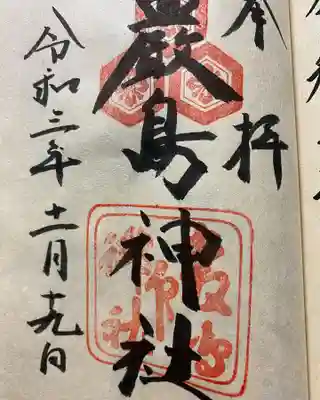 奉拝
嚴島神社
令和三年十一月十九日